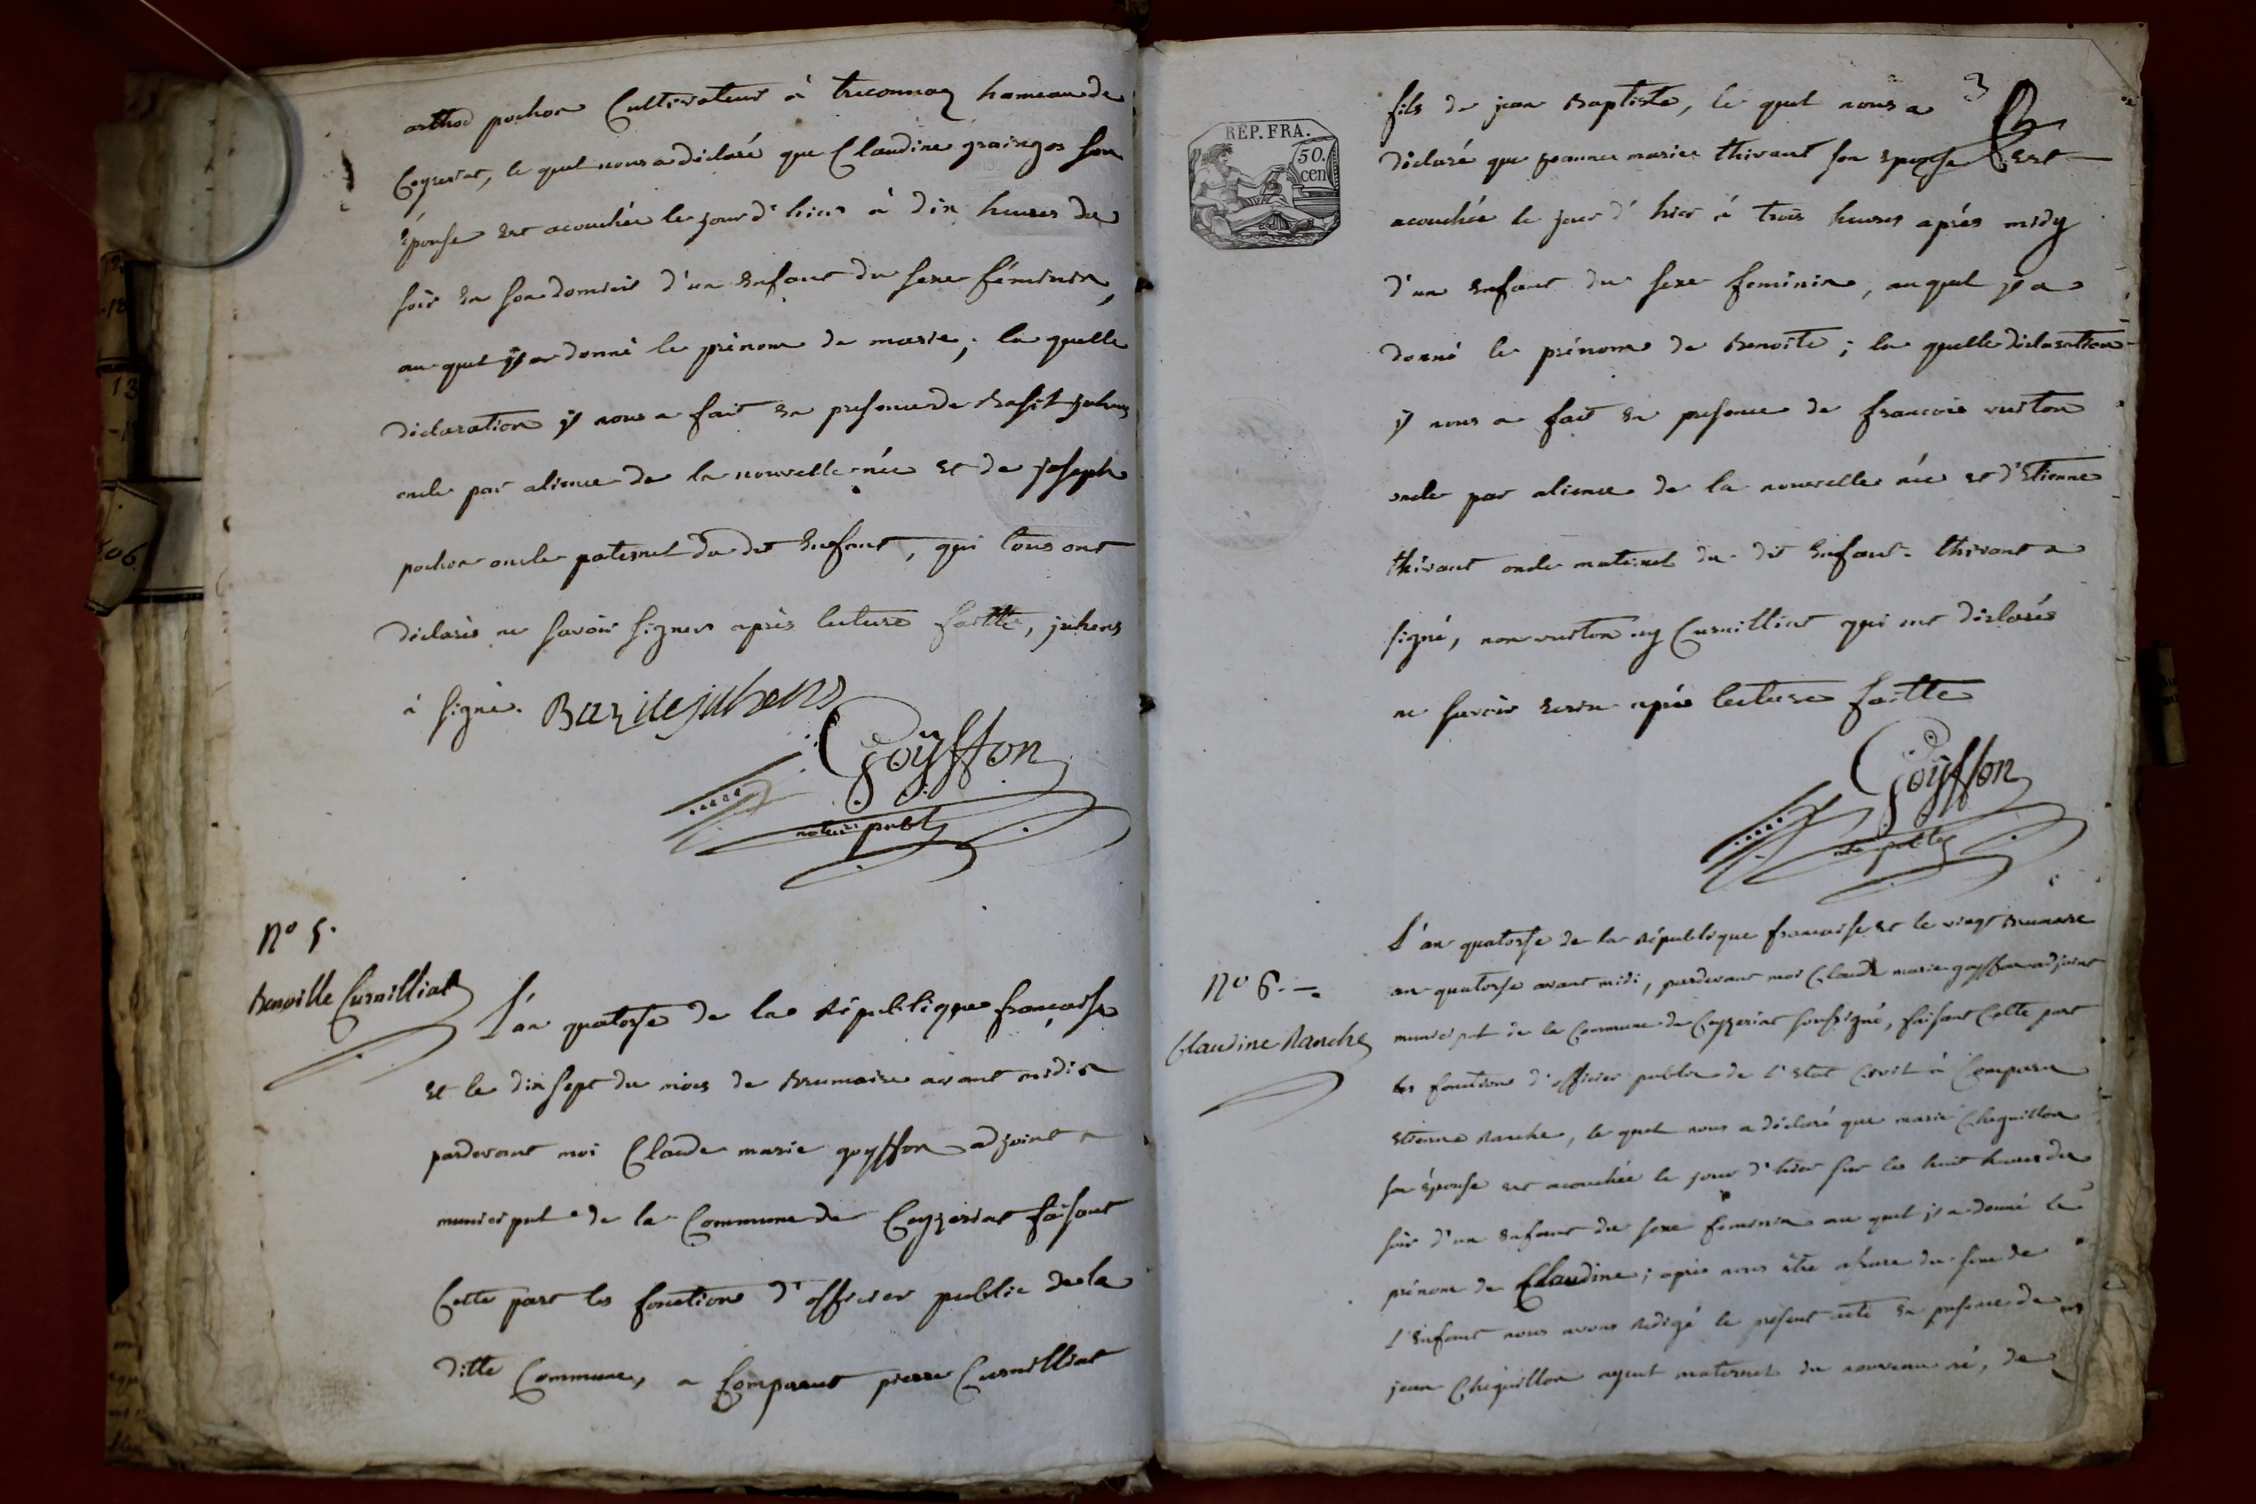 arthod pochon Cultivateur à treconnaz hameau de
Ceyzeriat, le quel nous a déclaré que Claudine graingos son
épouse est acouchée le jour d'hier à dix heures du
soir en son domicile d'un enfant du sexe féminin,
au quel il a donné le prénom de marie; la quelle
déclaration il nous a fait en presence de Basile juhens
oncle par aliance de la nouvelle née et de joseph
pochon oncle paternel du dit enfant, qui tous ont
déclarés ne savoir signer après lecture faitte, juhens
à signé. Bazile juhens
Goÿffon
notaire publ
N° 5.
Benoitte Curnilliat
L'an quatorse de la République française
et le dix sept du mois de Brumaire avant midi
pardevant moi Claude marie goyffon adjoint
municipal de la Commune de Ceyzeriat faisant
Cette part les fonctions d'officier public de la
ditte Commune, a Comparut pierre Curnilliat
3
RÉP. FRA.
50.
cen
fils de jean Baptiste, le quel nous a
déclaré que jeanne marie thivant son épouse Est
acouchée le jour d'hier à trois heures après midy
d'un enfant du sexe feminin, auquel il a
donné le prénom de Benoite; la quelle déclaration
il nous a fait en presence de francois vuiton
oncle par aliance de la nouvelle née et d'Etienne
thivant oncle maternel du dit enfant. thivant a
signé, non vuiton ny Curnilliat qui ont déclarés
ne savoir écrire après lecture faitte
Goÿffon
N° 6.
Claudine Ranche
L'an quatorse de la République francaise et le vingt Brumaire
an quatorse avant midi, pardevant moi Claude marie goyffon adjoint
municipal de la Commune de Ceyzeriat soussigné, faisant Cette part
les fonctions d'officier public de l'état Civil à Comparu
Etienne Ranche, le quel nous a déclaré que marie Chiquillon
son épouse est acouchée le jour d'hier sur les huit heures du
soir d'un enfant du sexe féminin au quel il a donné le
prénom de Claudine; après nous être assuré du sexe de
l'enfant nous avons rédigé le présent acte en presence de
jean Chiquillon ayeul maternel du nouveau né, de